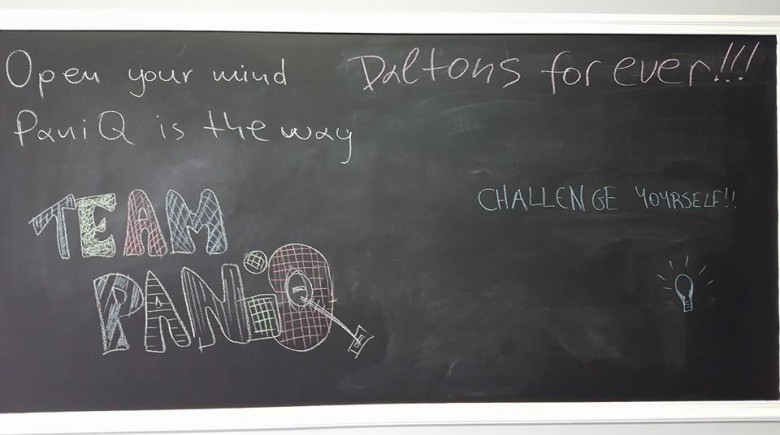 Open your mind
PaniQ is the way
Daltons for ever!!!
CHALLENGE YOYRSELF!!
TEAM
PANiQ